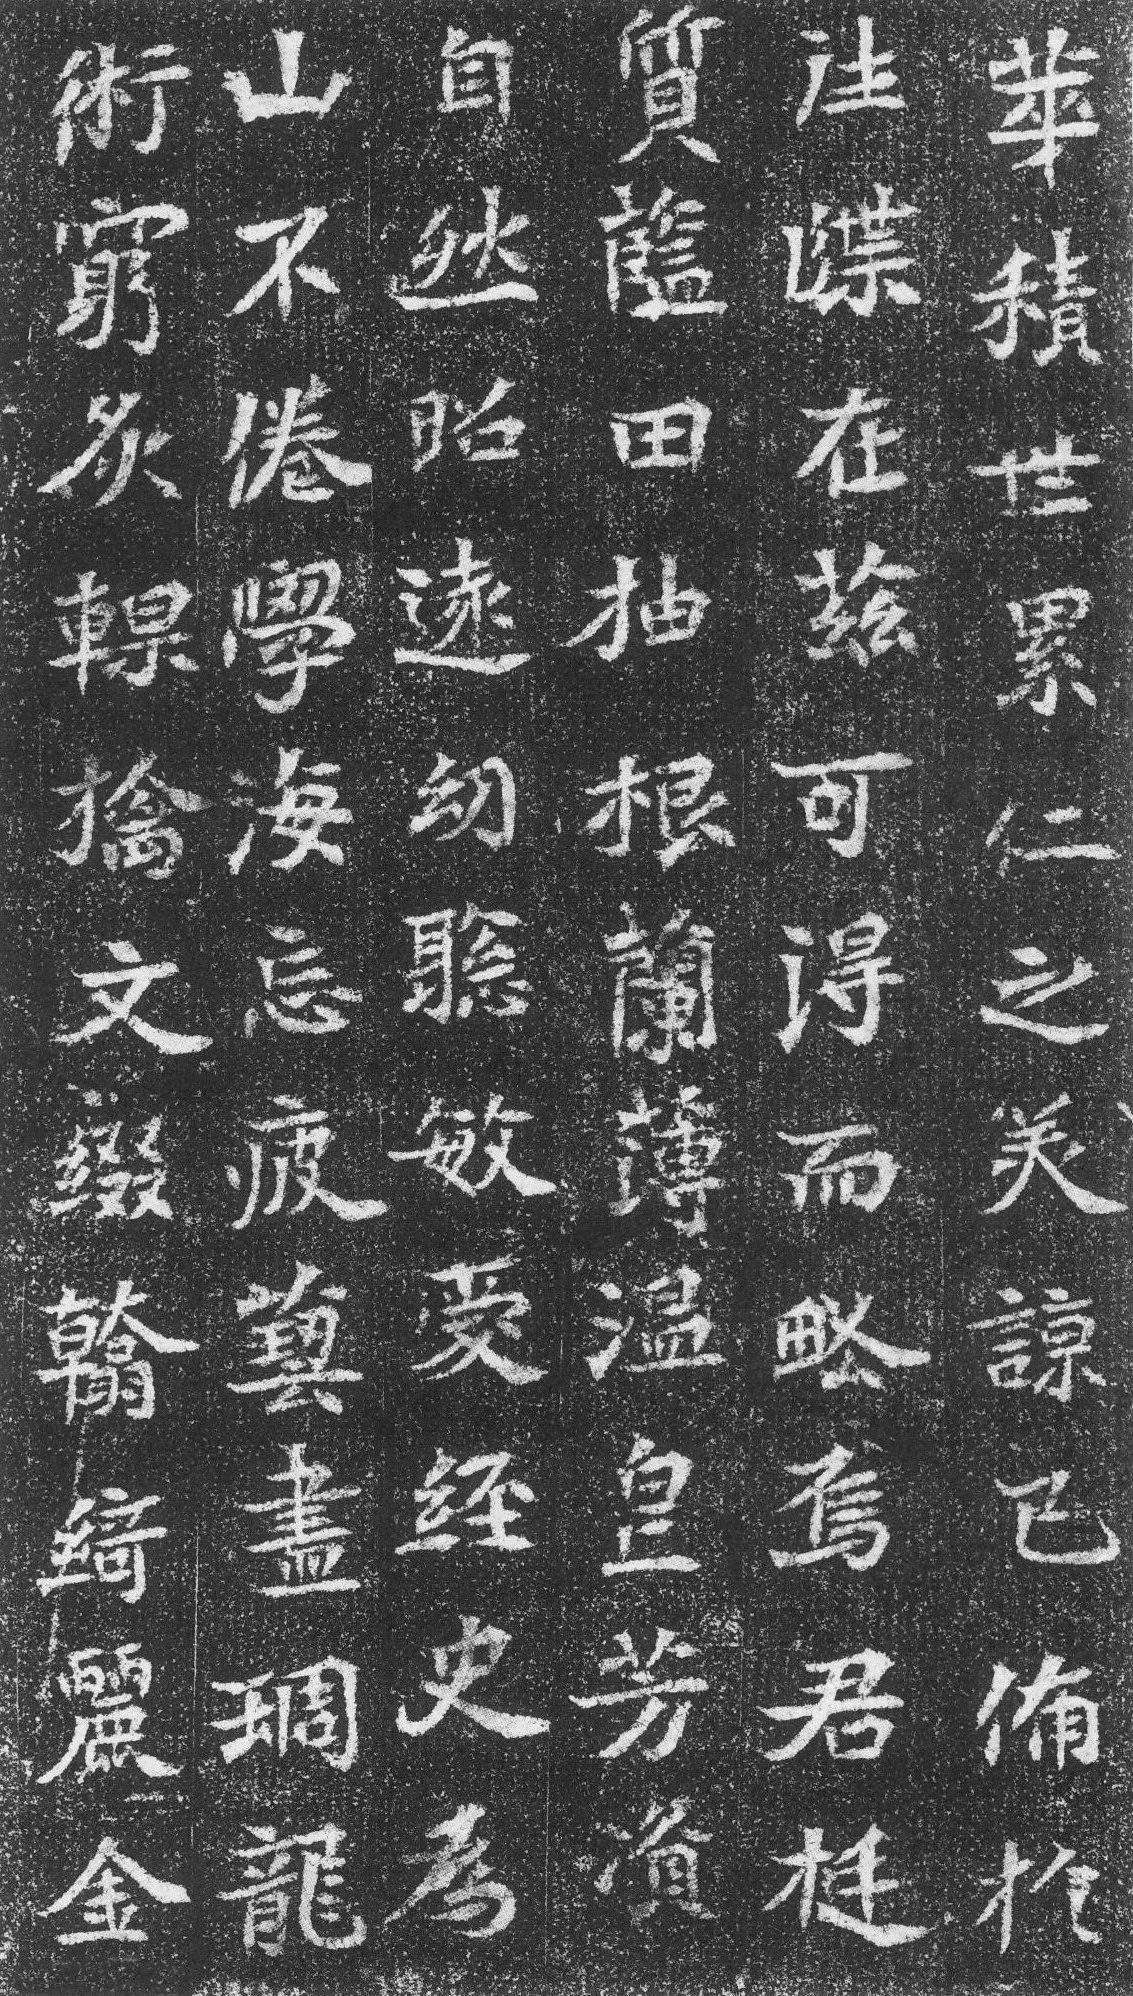 華積世累仁之美諒已備扵
往諜在茲可得而略焉君挺
質藍田抽根蘭薄溫皇芳資
自然昭遠幼聰敏愛經史為
山不倦學海忘疲藝盡琱龍
術窮炙輠摛文綴翰綺麗金